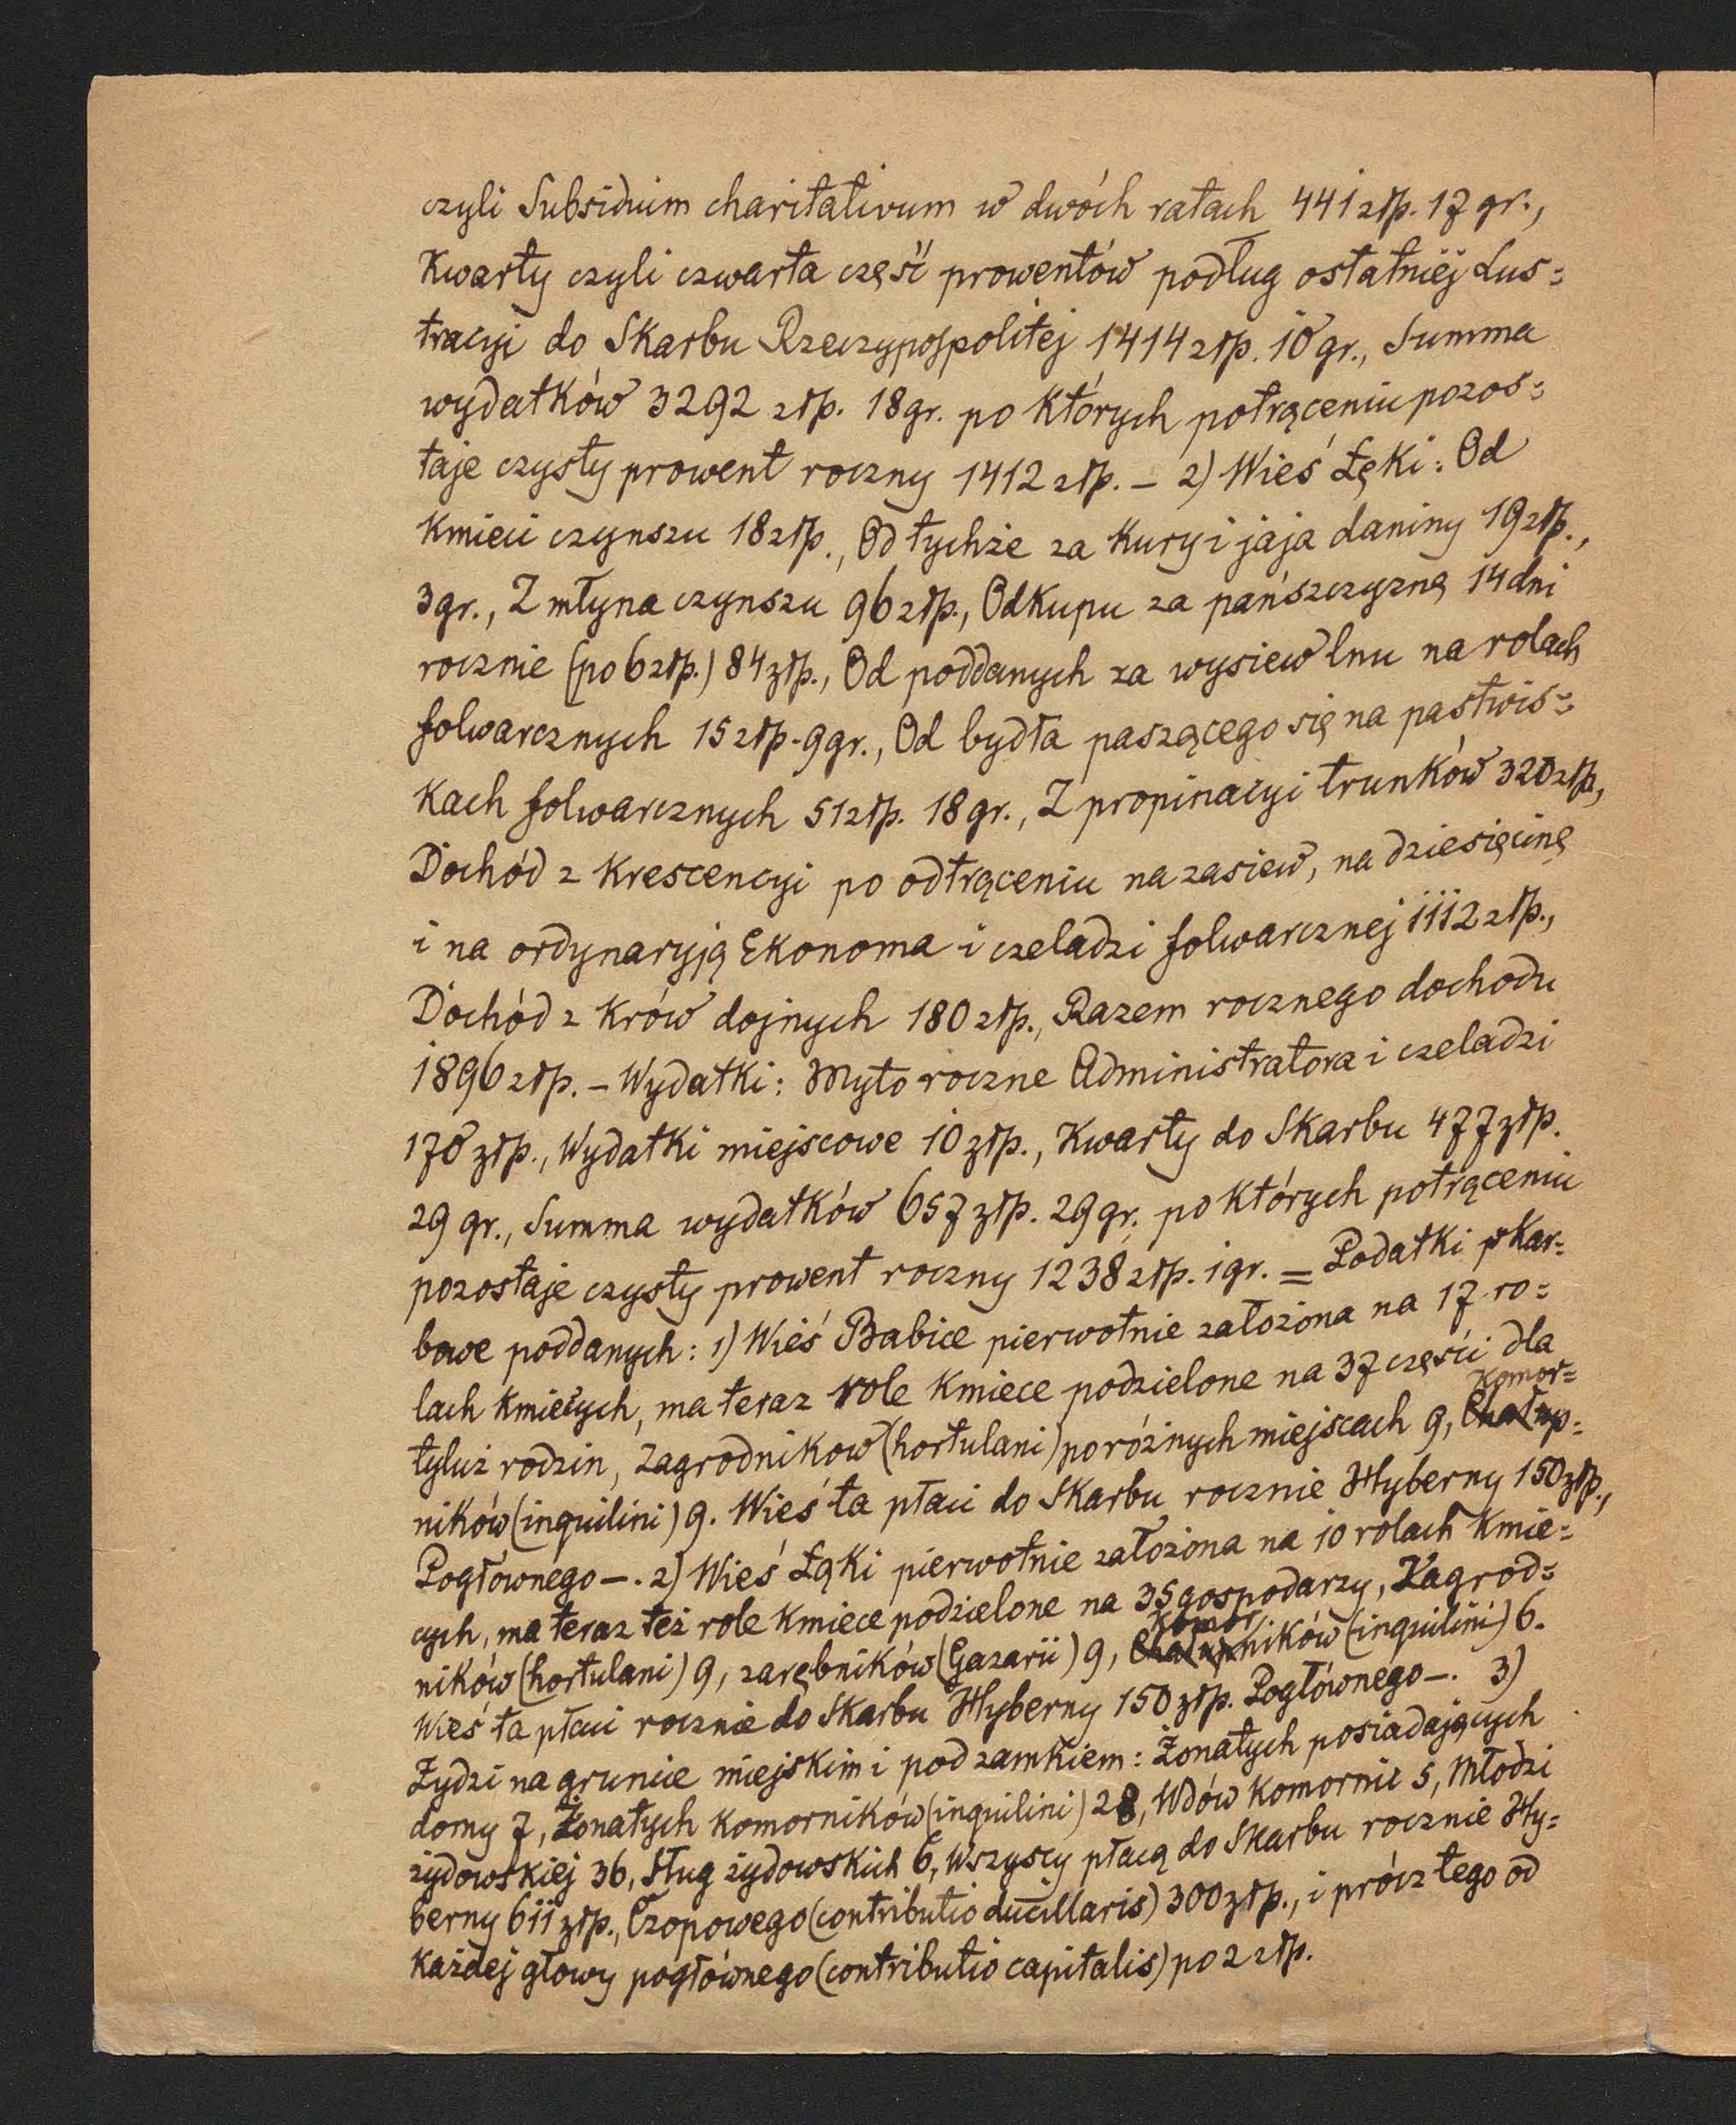 czyli Subsidium charitativum w dwóch ratach 441 złp. 17 gr.,
Kwarty czyli czwarta część prowentów podług ostatniej Lus=
tracyi do Skarbu Rzeczypospolitej 1414 złp. 10 gr., Summa
wydatków 3292 złp. 18 gr. po których potrąceniu pozos=
taje czysty prowent roczny 1412 złp. – 2) Wieś Łęki: Od
Kmieci czynszu 18 złp., Od tychże za kury i jaja daniny 19 złp.,
3 gr., Z młyna czynszu 96 złp., Odkupu za pańszczyznę 14 dni
rocznie (po 6 złp.) 84 złp., Od poddanych za wysiew lnu na rolach
folwarcznych 15 złp. 9 gr., Od bydła paszącego się na pastwis=
kach folwarcznych 51 złp. 18 gr., Z propinacyi trunków 320 złp,
Dochód z Krescencyi po odtrąceniu na zasiew, na dziesięcinę
i na ordynaryją Ekonoma i czeladzi folwarcznej 1112 złp.,
Dochód z Krów dojnych 180 złp., Razem rocznego dochodu
1896 złp. – Wydatki: Myto roczne Administratora i czeladzi
170 złp., Wydatki miejscowe 10 złp., Kwarty do Skarbu 477 złp.
29 gr., Summa wydatków 657 złp. 29 gr. po których potrąceniu
pozostaje czysty prowent roczny 1238 złp. 1 gr. = Podatki skar=
bowe poddanych: 1) Wieś Babice pierwotnie założona na 17 ro=
lach kmiecych, ma teraz role kmiece podzielone na 37 części dla
komor=
tyluż rodzin, Zagrodnikow (hortulani) po różnych miejscach 9, Chałup=
ników (inquilini) 9. Wieś ta płaci do Skarbu rocznie Hyberny 150 złp.,
Pogłównego –. 2) Wieś Łąki pierwotnie założona na 10 rolach kmie=
cych, ma teraz też role kmiece podzielone na 35 gospodarzy, Zagrod=
komor
ników (hortulani) 9, zarębników (Gazarii) 9, Chałupników (inquilini) 6.
Wieś ta płaci rocznie do Skarbu Hyberny 150 złp. Pogłównego –. 3)
Żydzi na gruncie miejskim i pod zamkiem: Żonatych posiadających
domy 7, Żonatych komorników (inquilini) 28, Wdów komornic 5, Młodzi
żydowskiej 36, Sług żydowskich 6, Wszyscy płacą do Skarbu rocznie Hy=
berny 611 złp., Czopowego (contributio ducillaris) 300 złp., i prócz tego od
każdej głowy pogłównego (contributio capitalis) po 2 złp.